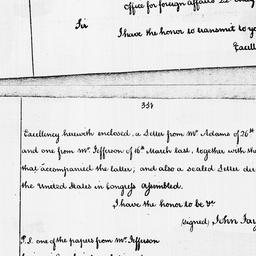 Office for foreign affairs 22
Sir
I have the honor to transmit to yo
Excell
338
Excellency herewith enclosed, a Letter from Mr. Adams of 26th
and one from Mr. Jefferson of 16th March last, together with the
that accompanied the latter; and also a sealed Letter
the United States in Congress assembled.
I have the honor to be &c
(signed) John Jay
P.S. one of the papers from Mr. Jefferson